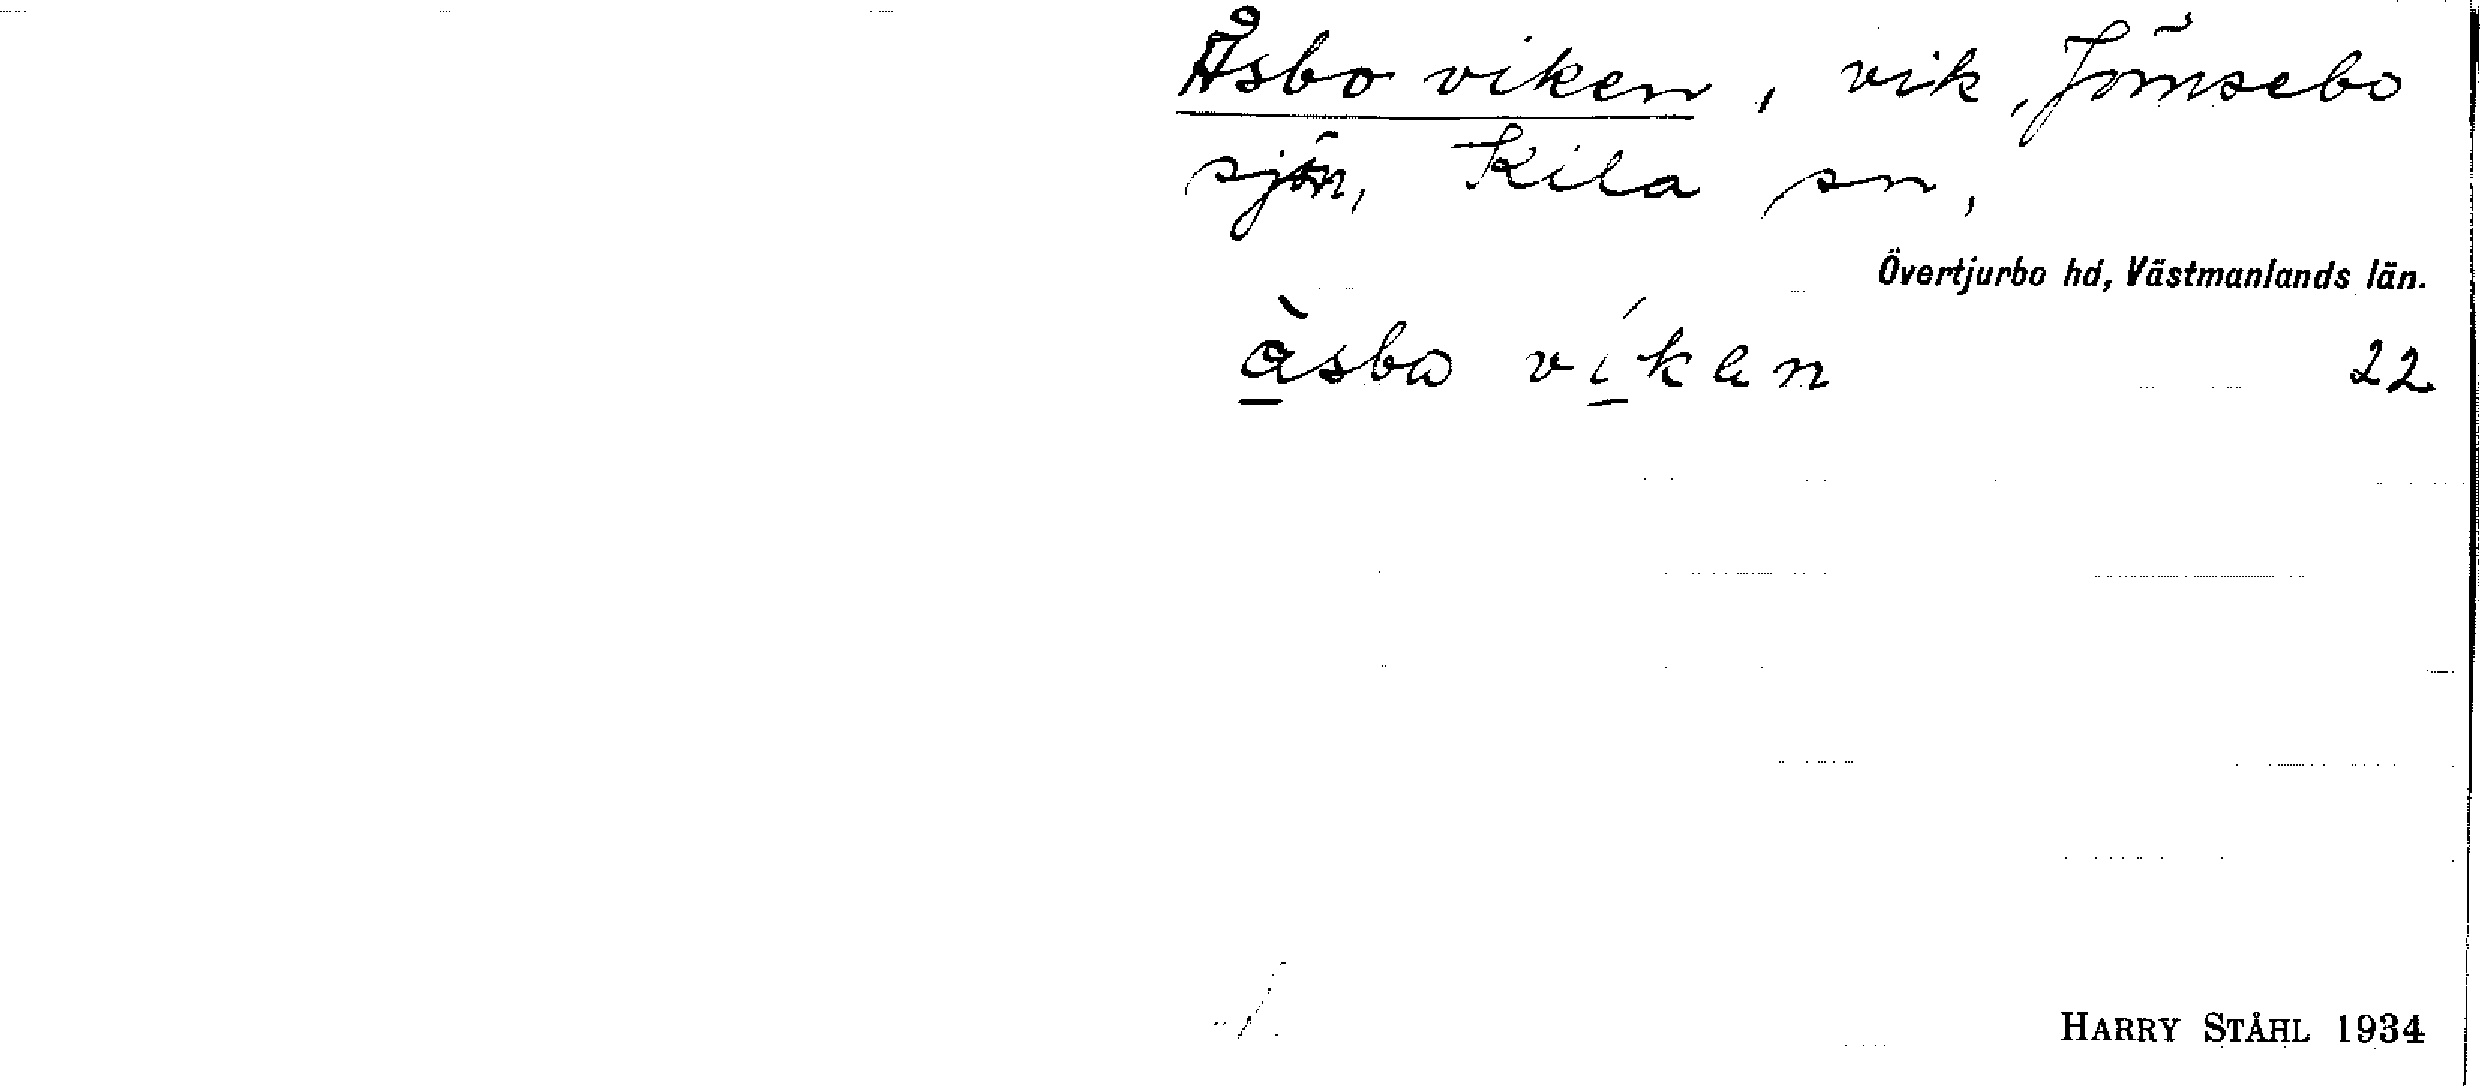 Åsboviken, vik, Jömsebo
sjön, Kila sn,
Övertjurbo hd, Västmanlands län.
å̀sbω víken 22
HARRY STÅHL 1934